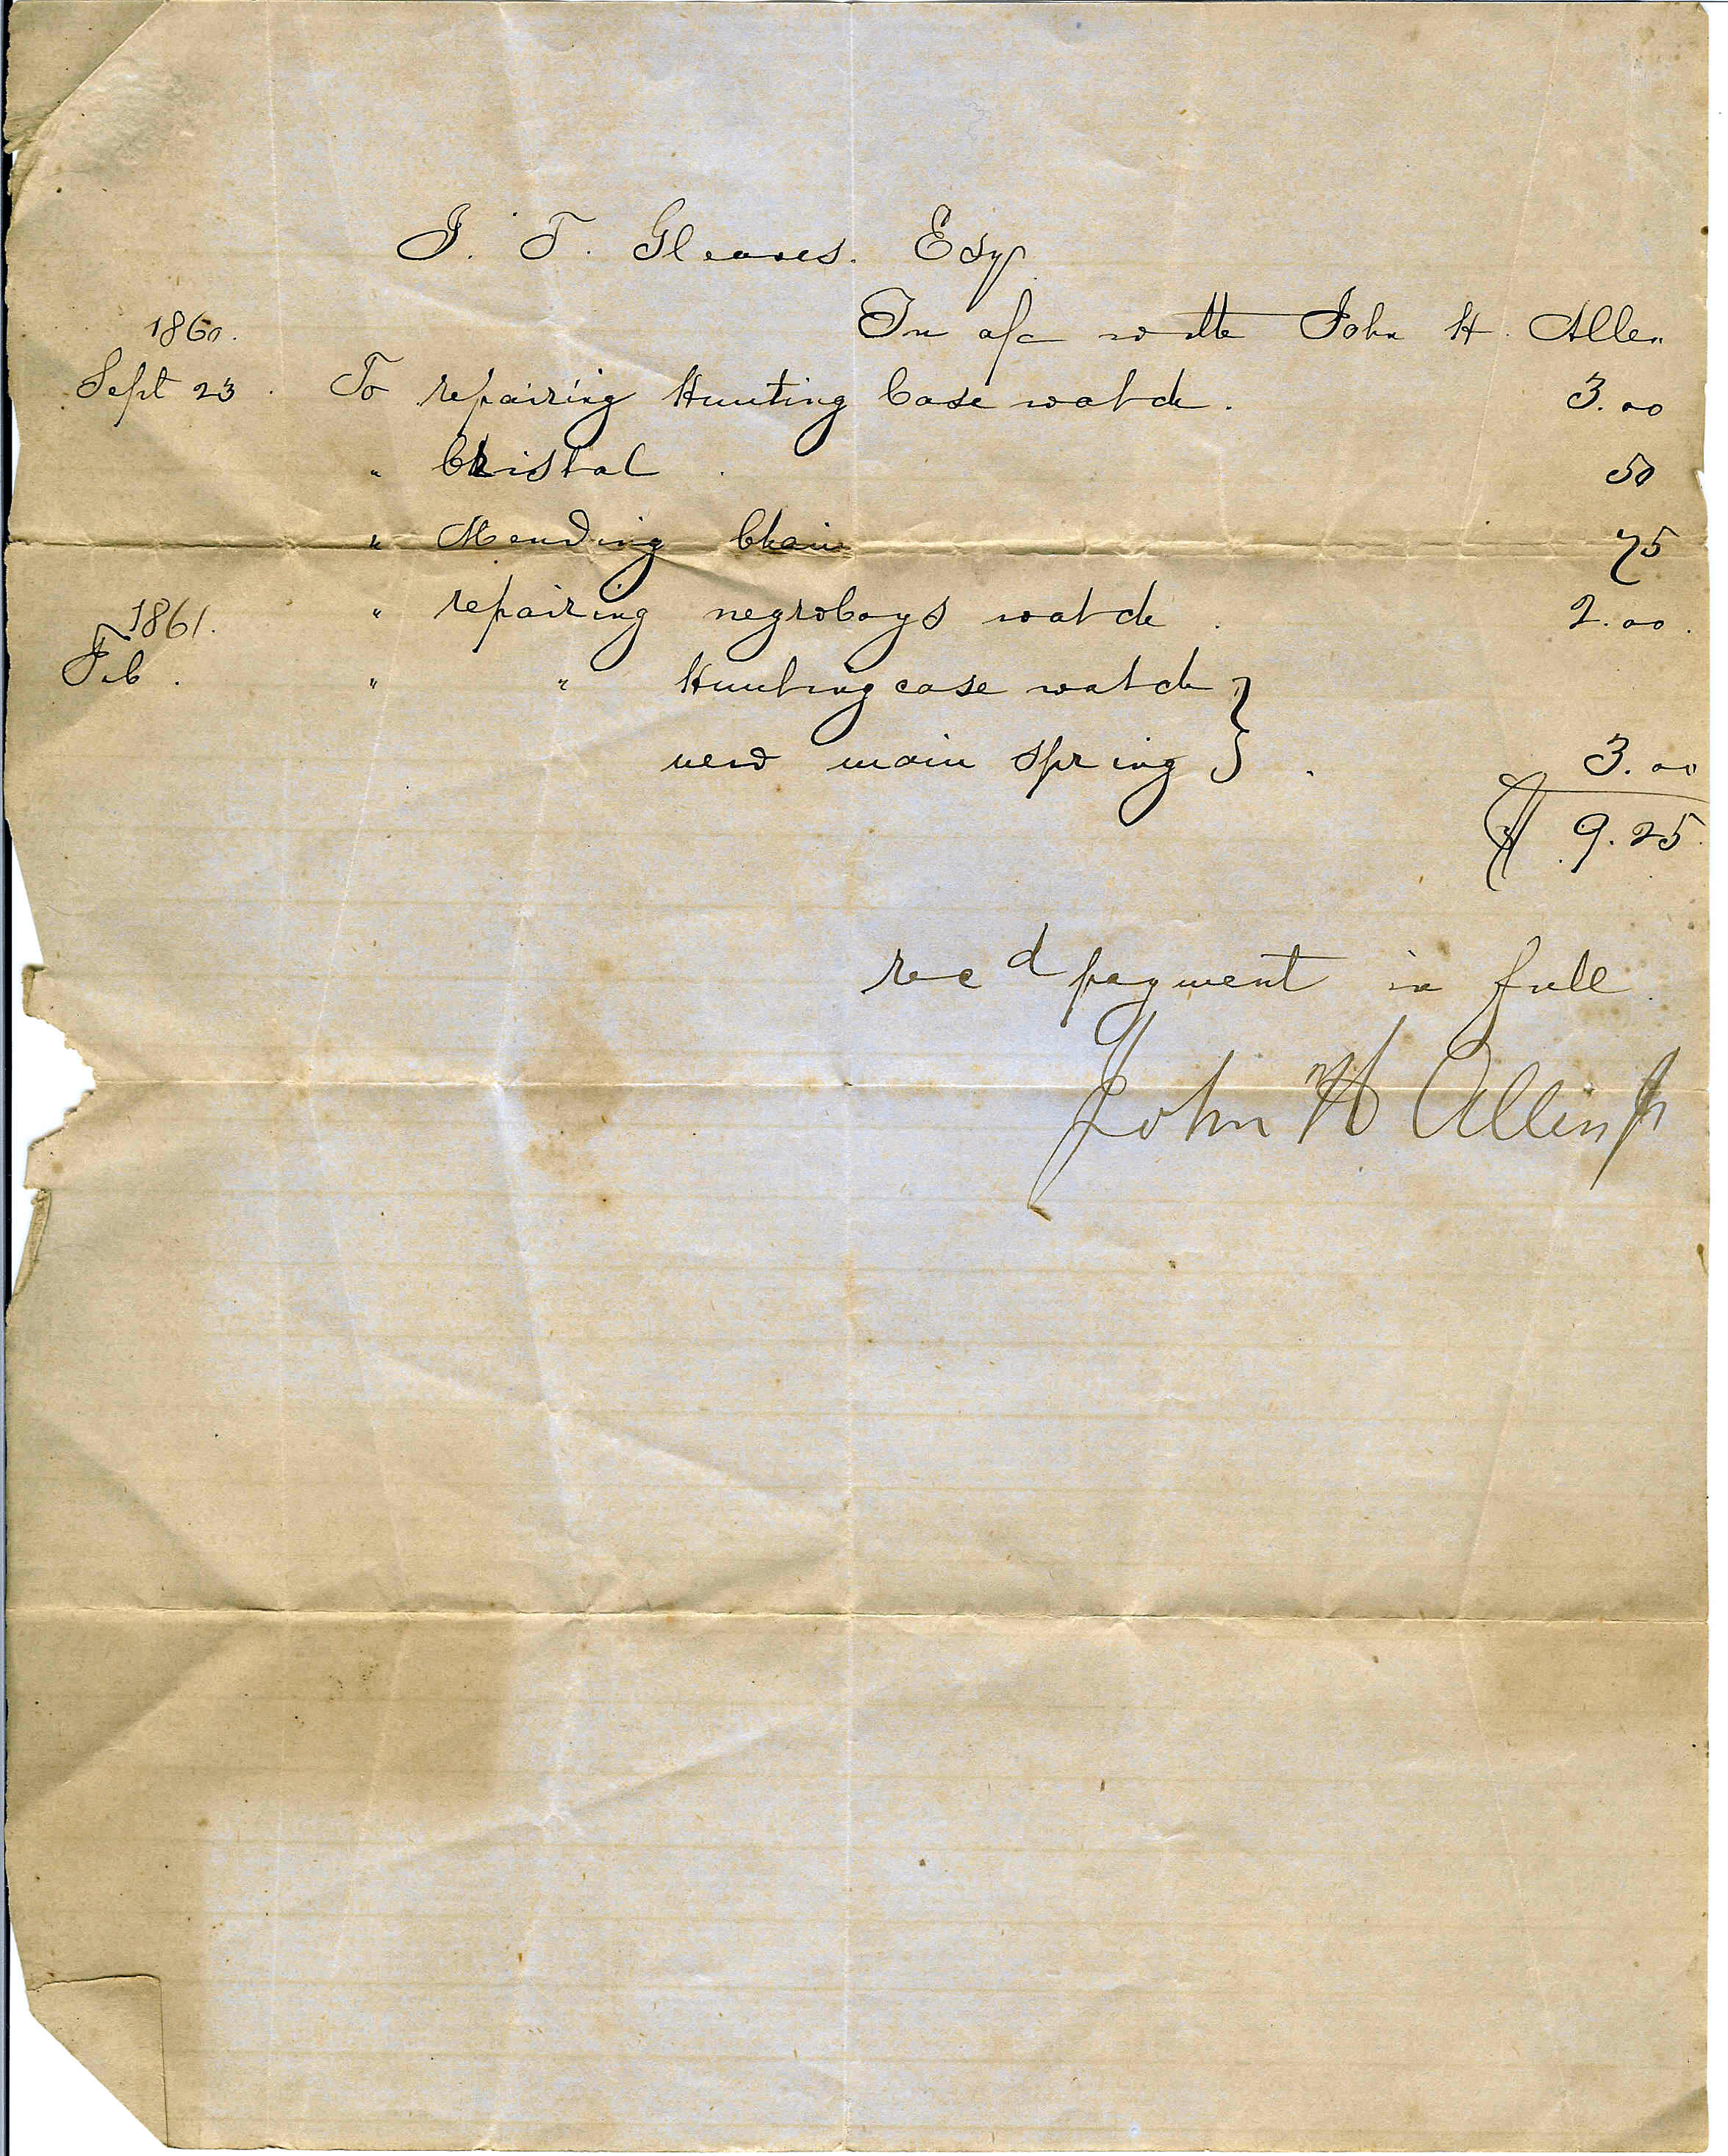 J. T. Gleaves. Esq
In a/c with John H. Allen
1860.
Sept 23. To repairing Hunting Case watch. 3.00
" Cristal. 50
" Mending Chain 75
1861. " repairing negroboys watch. 2.00.
Feb. " " Hunting case watch }
new main spring }. 3.00
$ 9.25.
recd payment in full.
John H Allen Jr